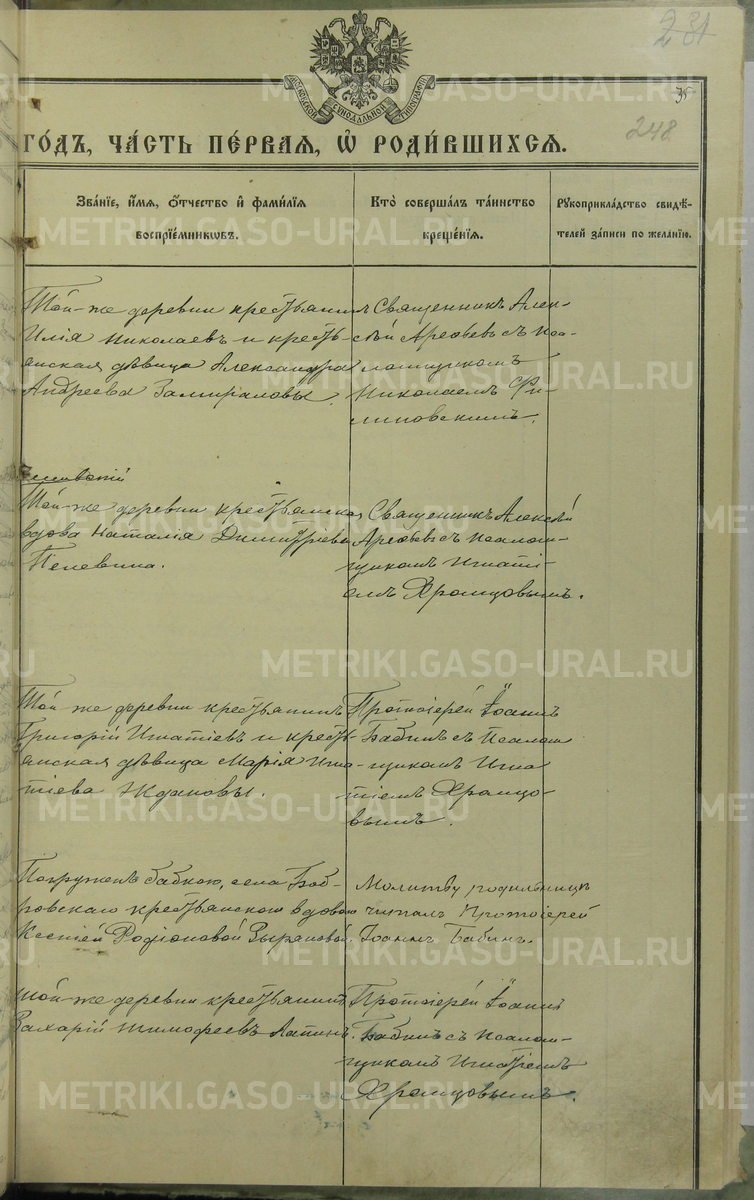 231
35
248
МОСКОВСКОЙ СѴНОДАЛЬНОЙ ТИПОГРАФІИ
го́дъ, ча́сть пе́рваѧ, ѡ҆ роди́вшихсѧ.
Зва́нїе, и҆́мѧ, ѻ҆́тчество и҆ фами́лїѧ
воспрїе́мникѡвъ.
Кто̀ соверша́лъ та́инство
креще́нїѧ.
Рꙋкоприкла́дство свидѣ́-
телей за́писи по жела́нїю.
Той-же деревни крестьянинъ
Илія Николаевъ и кресть-
янская дѣвица Александра
Андреева Замираловы.
Священникъ Алек-
сѣй Арефьевъ съ пса-
ломщикомъ
Николаемъ Фи-
линовскимъ.
Той-же деревни крестьянская
вдова Наталія Димитріева
Пелевина.
Священникъ Алексѣй
Арефьевъ съ псалом-
щикомъ Игнаті-
емъ Храмцовымъ.
Той-же деревни крестьянинъ
Григорій Игнатіевъ и кресть-
янская дѣвица Марія Игна-
тіева Ждановы.
Протоіерей Іоаннъ
Бабинъ съ псалом-
щикомъ Игна
тіемъ Храмцо-
вымъ.
Погруженъ бабкою, села Боб-
ровскаго крестьянскою вдовою
Ксеніей Родіоновой Зыряновой.
Молитву родильницѣ
читалъ Протоіерей
Іоаннъ Бабинъ.
Той-же деревни крестьянинъ
Захарій Тимофеевъ Лапинъ.
Протоіерей Іоаннъ
Бабинъ съ псалом-
щикомъ Игнатіемъ
Храмцовымъ.
METRIKI.GASO-URAL.RU